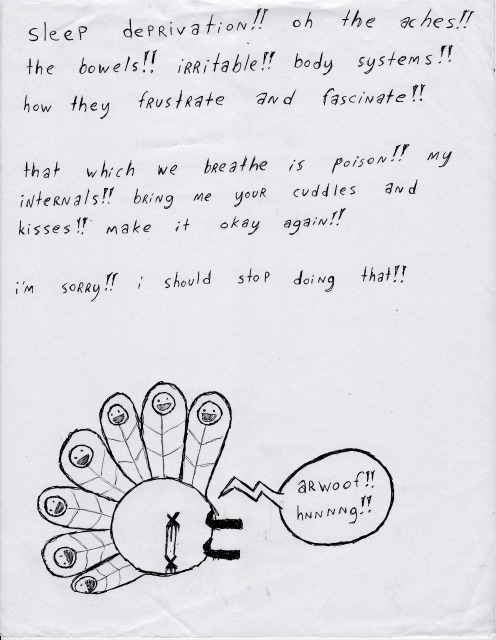 sleep deprivation!! oh the aches!!
the bowels!! irritable!! body systems!!
how they frustrate and fascinate!!
that which we breathe is poison!! my
internals!! bring me your cuddles and
kisses!! make it okay again!!
i'm sorry!! i should stop doing that!!
arwoof!!
hnnnnng!!